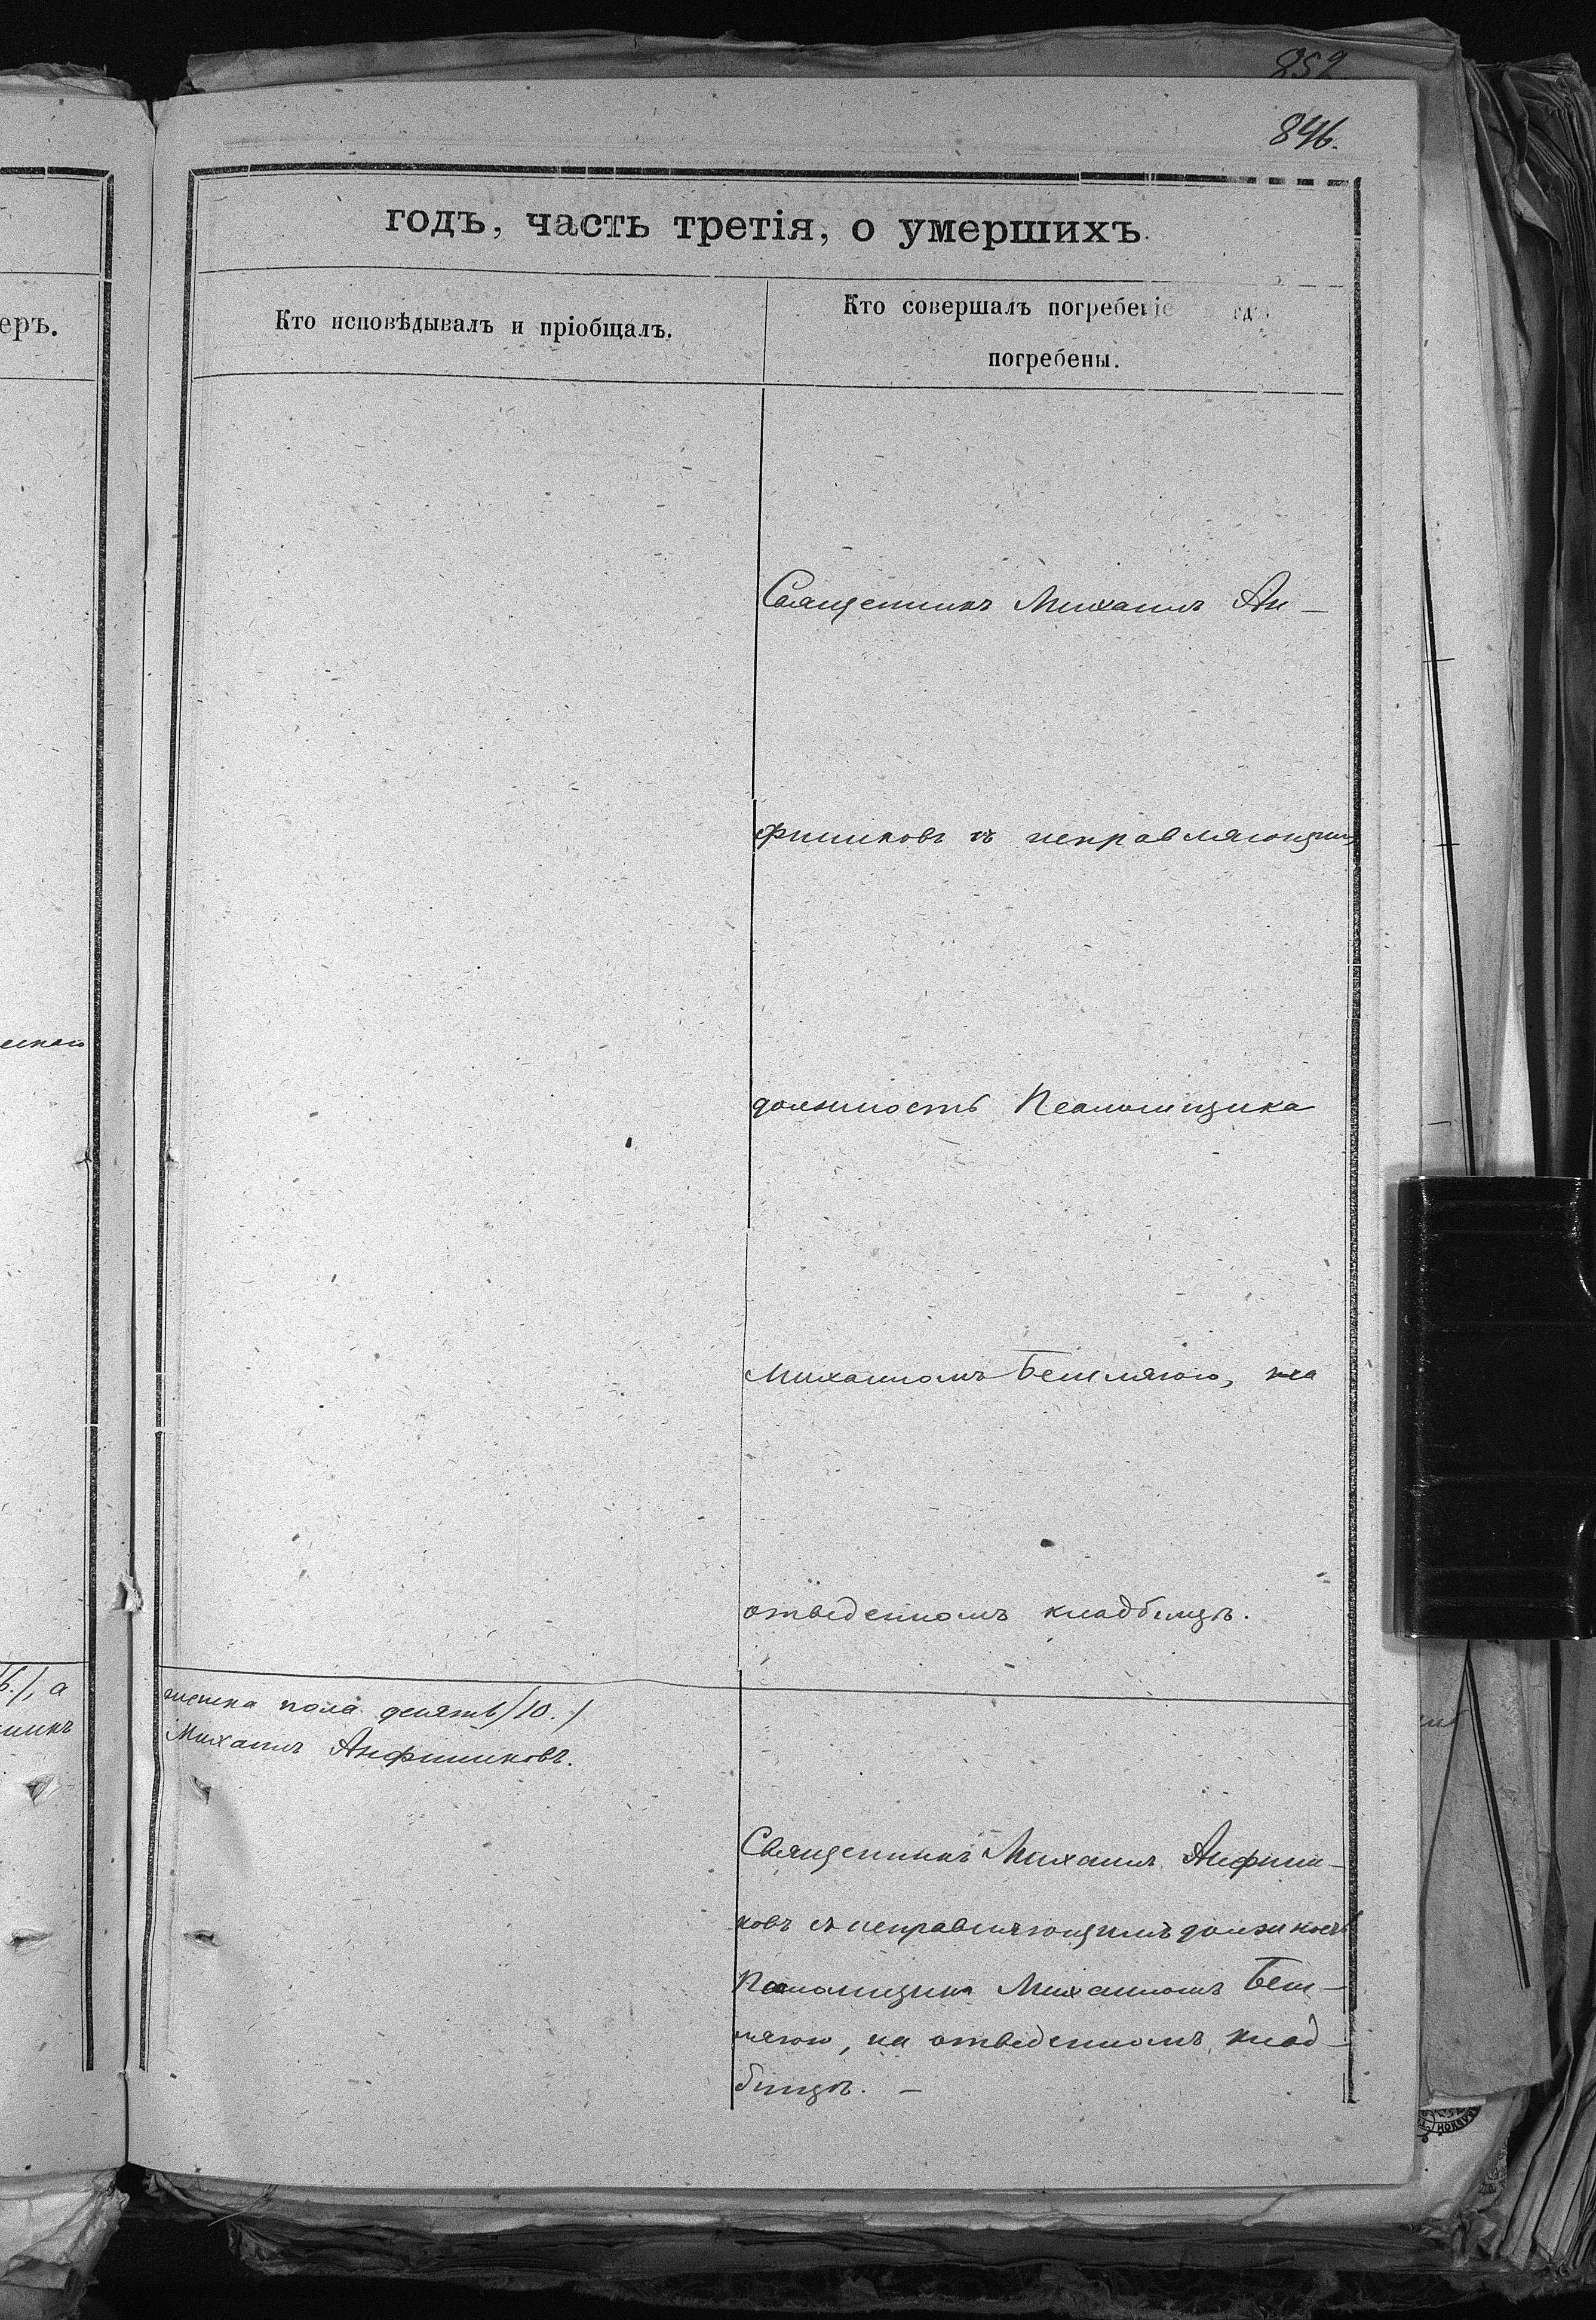 852
846.
годъ, часть третія, о умершихъ.
еръ.
Кто исповѣдывалъ и пріобщалъ.
Кто совершалъ погребеніе гдѣ
погребены.
Священникъ Михаилъ Ан-
фишковъ съ исправляющимъ
должность Псаломщика
Михаиломъ Бешлягою, на
отведенномъ кладбищѣ.
женска пола десять /10./
Михаилъ Анфишковъ.
Священникъ Михаилъ Анфиш-
ковъ съ исправляющимъ должность
Псаломщика Михаиломъ Беш-
лягою, на отведенномъ клад-
бищѣ. -